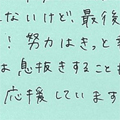 ないけど、最後
！努力はきっと
は息抜きすること
応援しています